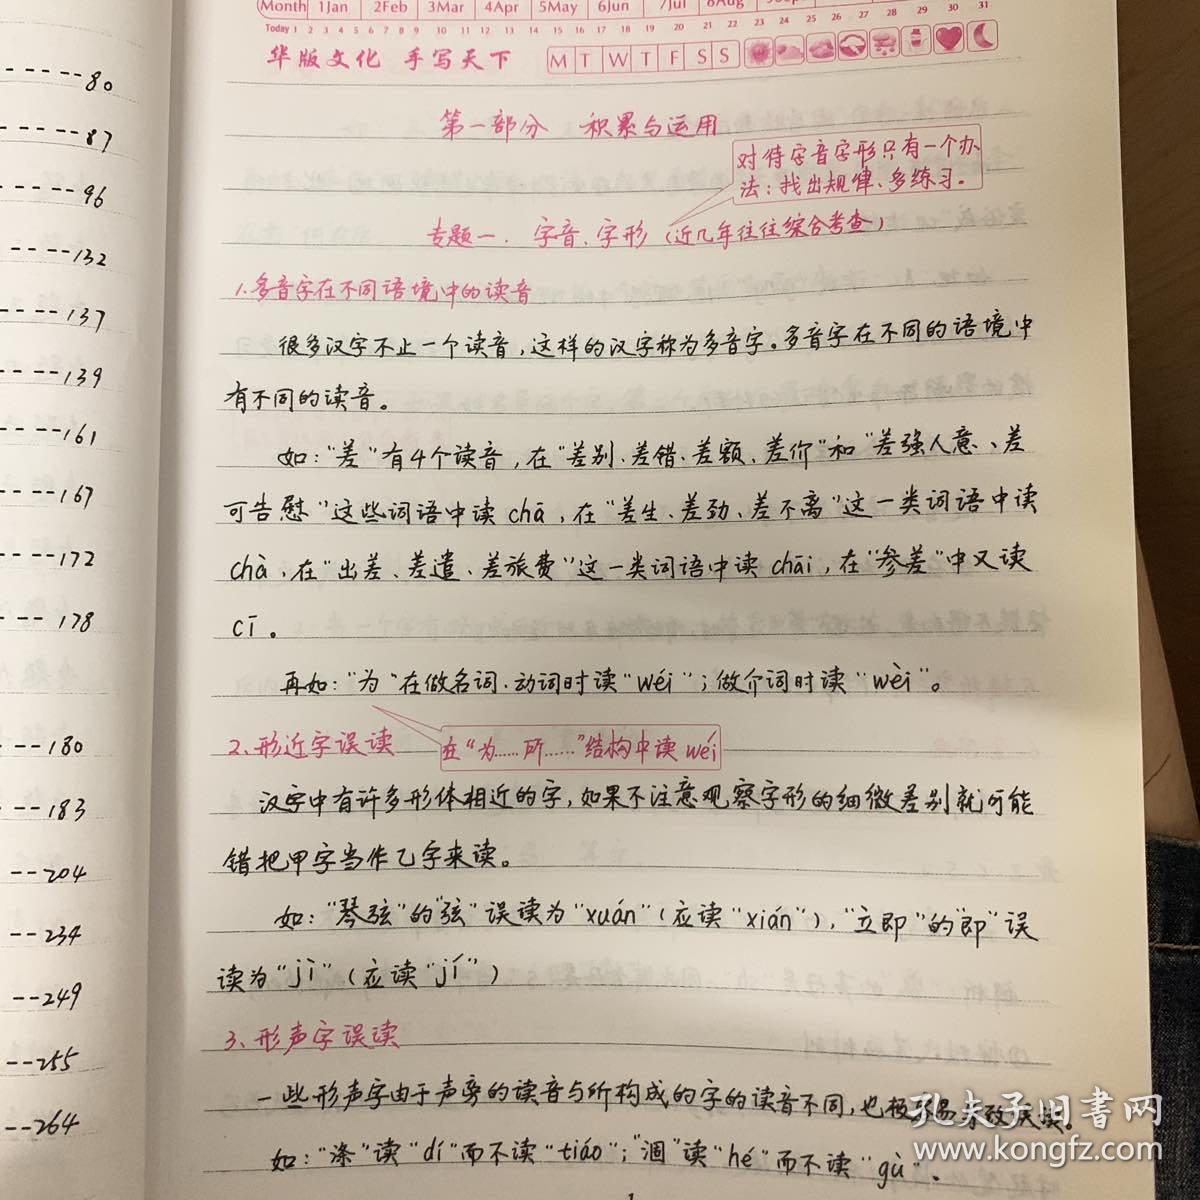 Month 1Jan 2Feb 3Mar 4Apr 5May 6Jun 7Jul 8Aug
Today 1 2 3 4 5 6 7 8 9 10 11 12 13 14 15 16 17 18 19 20 21 22 23 24 25 26 27 28 29 30 31
华版文化 手写天下 M T W T F S S
第一部分 积累与运用
对待字音字形只有一个办
法：找出规律、多练习。
专题一.字音、字形（近几年往往综合考查）
1.多音字在不同语境中的读音
很多汉字不止一个读音,这样的汉字称为多音字。多音字在不同的语境中
有不同的读音。
如："差"有4个读音,在"差别、差错、差额、差价"和"差强人意、差
可告慰"这些词语中读chā,在"差生、差劲、差不离"这一类词语中读
chà,在"出差、差遣、差旅费"这一类词语中读chāi,在"参差"中又读
cī。
再如："为"在做名词、动词时读"wéi"；做介词时读"wèi"。
2、形近字误读
在"为……所……"结构中读wéi
汉字中有许多形体相近的字,如果不注意观察字形的细微差别就可能
错把甲字当作乙字来读。
如："琴弦"的"弦"误读为"xuán"(应读"xián"),"立即"的"即"误
读为"jì"(应读"jí")
3、形声字误读
一些形声字由于声旁的读音与所构成的字的读音不同,也极容易导致误读。
如："涤"读"dí"而不读"tiáo"；"涸"读"hé"而不读"gù".
1
-----80
-----87
----96
----132
----137
----139
----161
----167
----172
--- 178
---180
---183
--204
--234
--249
--255
--264
孔夫子旧书网
www.kongfz.com